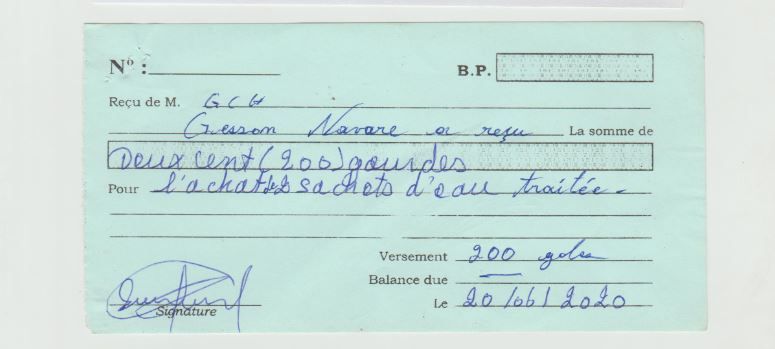 Nº :
B.P.
Reçu de M. GCH
Gesson Navare a reçu La somme de
Deux cent (200) gourdes
Pour l'achat de sachets d'eau traitée.
Versement 200 gdes
Balance due —
Le 20/06/2020
Signature